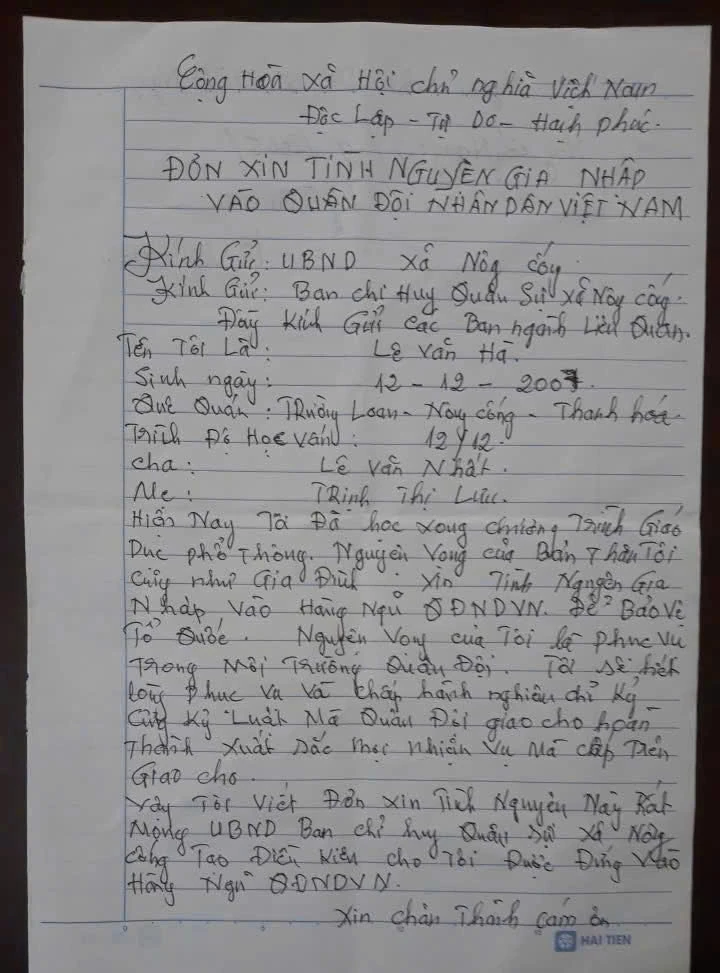 Cộng Hòa Xã Hội chủ nghĩa Việt Nam
Độc Lập - Tự Do - Hạnh phúc.
ĐƠN XIN TÌNH NGUYỆN GIA NHẬP
VÀO QUÂN ĐỘI NHÂN DÂN VIỆT NAM
Kính Gửi: UBND xã Nông cống.
Kính Gửi: Ban chỉ Huy Quân Sự xã Nông cống.
Đồng Kính Gửi các Ban ngành Liên Quan.
Tên Tôi Là: Lê Văn Hà.
Sinh ngày: 12 - 12 - 2007.
Quê Quán: Trường Loan - Nông cống - Thanh hóa.
Trình Độ Học vấn: 12/12.
cha: Lê Văn Nhất.
Mẹ: Trịnh Thị Lưu.
Hiện Nay Tôi Đã học xong chương Trình Giáo
Dục phổ Thông. Nguyện Vọng của Bản Thân Tôi
cũng như Gia Đình: xin Tình Nguyện Gia
Nhập Vào Hàng Ngũ QĐNDVN. Để Bảo Vệ
Tổ Quốc. Nguyện Vọng của Tôi là phục vụ
Trong Môi Trường Quân Đội. Tôi sẽ hết
lòng phục vụ và chấp hành nghiêm chỉ kỷ
cũng kỷ Luật Mà Quân Đội giao cho hoàn
Thành xuất sắc mọi nhiệm vụ Mà cấp Trên
Giao cho.
Vậy Tôi Viết Đơn xin Tình Nguyện Này Rất
Mong UBND Ban chỉ huy Quân sự xã Nông
cống Tạo Điều kiện cho Tôi Được Đứng Vào
Hàng Ngũ QĐNDVN.
Xin chân Thành cám ơn
HAI TIEN